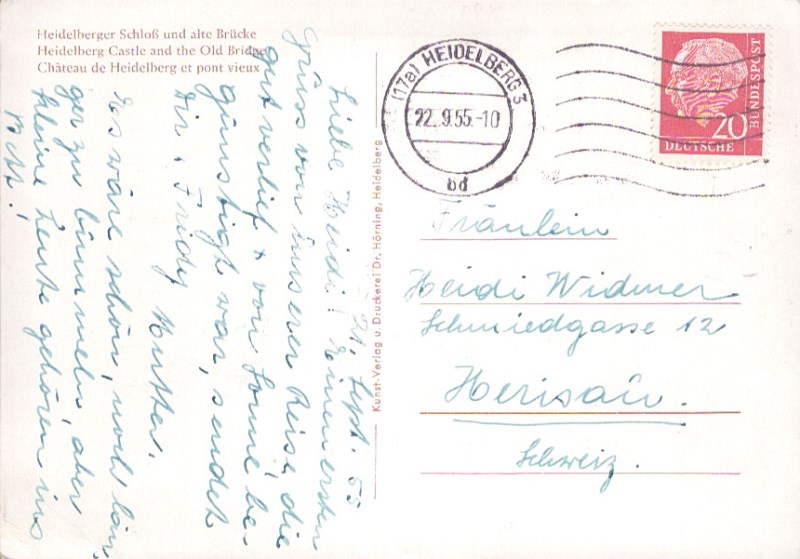 Heidelberger Schloß und alte Brücke
Heidelberg Castle and the Old Bridge
Château de Heidelberg et pont vieux
21. Sept. 55
Liebe Heidi! Einen ersten
Gruss von unserer Reise, die
gut verlief & von Sonne be-
günstigt war, sendet
Dir, Fridy Mutter.
Es wäre schön, noch län-
ger zu bummeln, aber
kleine Leute gehören ins
Bett!
Kunst-Verlag u. Druckerei Dr. Hörning, Heidelberg
(17a) HEIDELBERG 3
22.9.55.-10
bd
20
DEUTSCHE
BUNDESPOST
Fräulein
Heidi Widmer
Schmiedgasse 12
Herisau.
Schweiz.